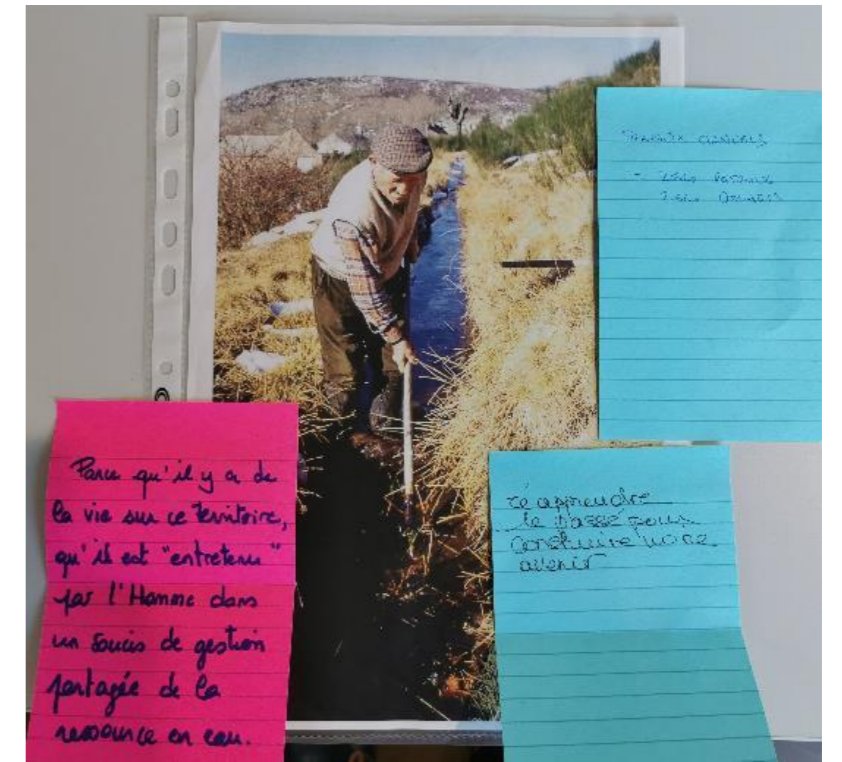 Parce qu'il y a de
la vie sur ce territoire,
qu'il est "entretenu"
par l'Homme dans
un soucis de gestion
partagée de la
ressource en eau.
réapprendre
le passé pour
construire notre
avenir